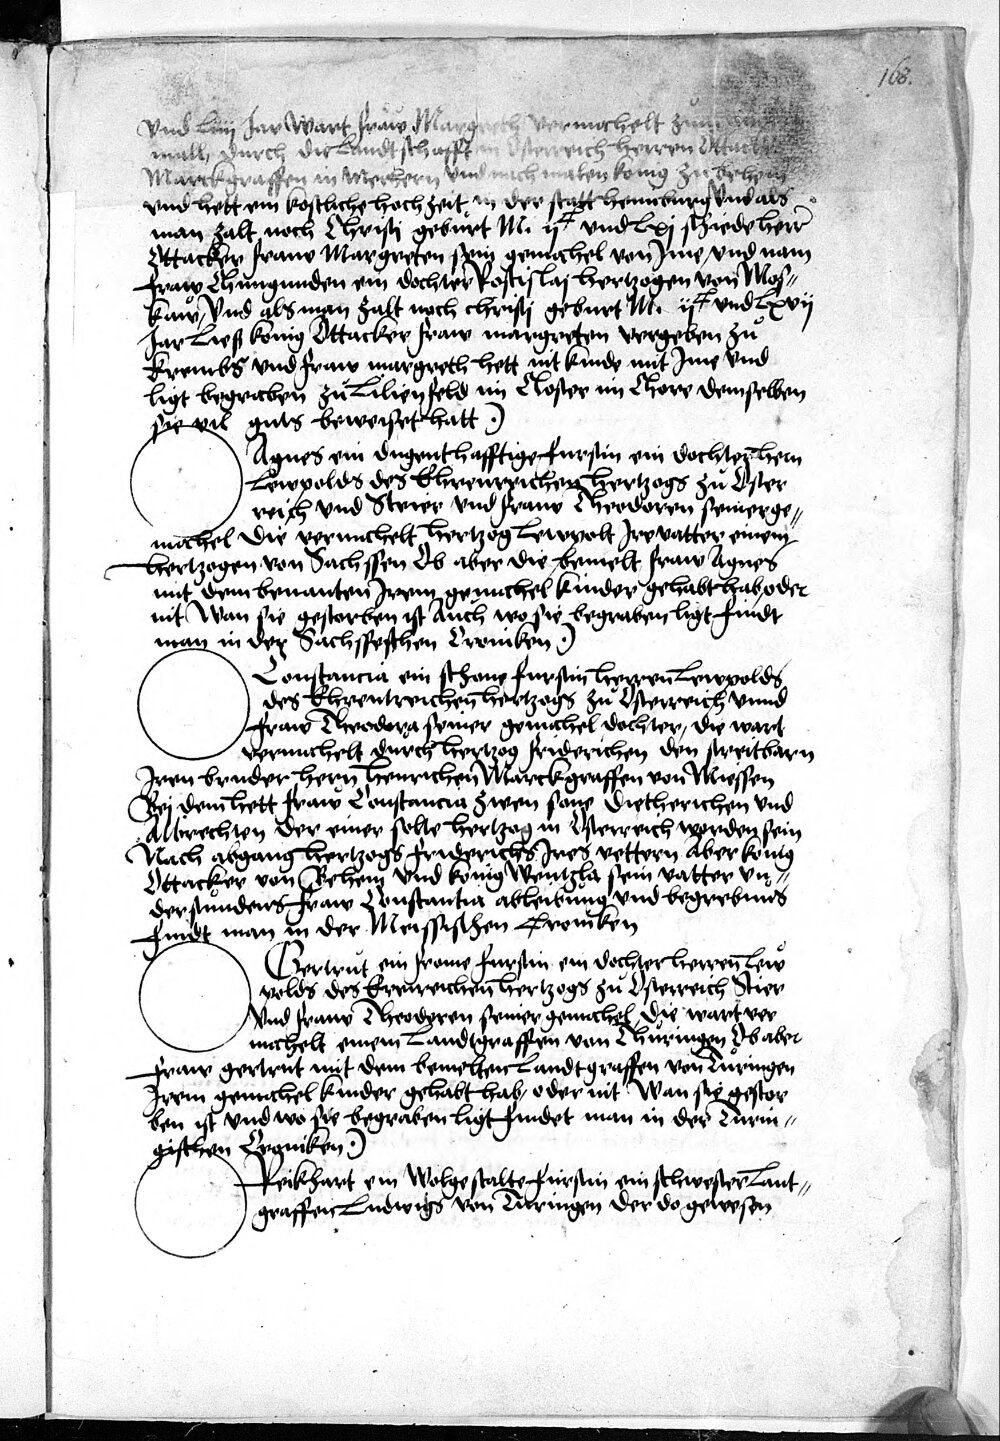 168.
vnd Liiij Jar wart fraw Margreth vermachelt zum
mall, durch die Landtschafft in Osterreich herren Ottacker
Marckgraffen in Merhern vnd nach maln konig zu Beheim
vnd hett ein kostliche hochzeit in der statt heimburg Vnd als
man zalt nach Christi geburt M. ijc vnd Lxj schiede herr
Ottacker fraw Margreten sein gemachel von Ime, vnd nam
fraw Chungunden ein dochter Rostislai hertzogen von Mos„
kaw, Vnd als man zalt nach christi geburt M. ijc vnd Lxvij
Jar Ließ konig Ottacker fraw margreten vergeben zu
krembs vnd fraw margreth hett nit kinde mit Ime vnd
ligt begraben zu Lilienfeld im Closter im Chore demselben
sie vil guts beweiset hatt .)
Agnes ein dugenthafftige furstin ein dochter hern
Lewpolds des Ehrenreichen hertzogs zu Oster
reich vnd Steier vnd fraw Theodoren seiner ge„
machel Die vermachelt hertzog Lewpolt Ire vatter einem
hertzogen von Sachssen Ob aber die bemelt fraw Agnes
mit dem benanten Irem gemachel kinder gehabt hab, oder
nit Wan sie gestorben ist Auch wo sie begraben ligt findt
man in der Sachssischen Croniken .)
Constancia ein schone furstin herren Lewpolds
des Ehrentreichen hertzogs zu Osterreich vnnd
fraw Theodora seiner gemachel dochter, die wart
vermachelt durch hertzog friderichen den streitbarn
Iren bruder hern henrichen Marckgraffen von Miessen
Bei dem hett fraw Constancia zwen sone Dietherichen vnd
Albrechten Der einer solte hertzog in Osterreich worden sein
Nach abgang hertzogs friderichs Ires vettern Aber konig
Ottacker von Behem vnd konig Wentzla sein vatter vn„
derstundens fraw Constantia ableibung vnd begrebnus
findt man in der Meissischen Croniken
Gertrut ein frome furstin ein dochter herren Lew
polds des Erenreichen hertzogs zu Osterreich Stier
Vnd fraw Theodoren seiner gemachel Die wart ver
machelt einem Landtgraffen von Thuringen Ob aber
fraw gertrut mit dem bemelten Landtgraffen von Turingen
Irem gemachel kinder gehabt hab, oder nit Wan sie gestor
ben ist vnd wo sie begraben ligt findet man in der Turin„
gischen Croniken .)
Reikhart ein Wolgestalte furstin ein schwester Lant„
graffen Ludwigs von Turingen Der do gewesen